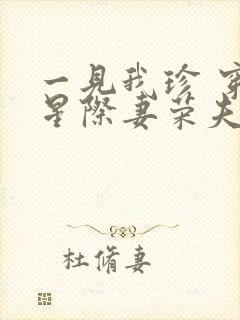 一見我珍
星際妻荣夫
杜脩妻